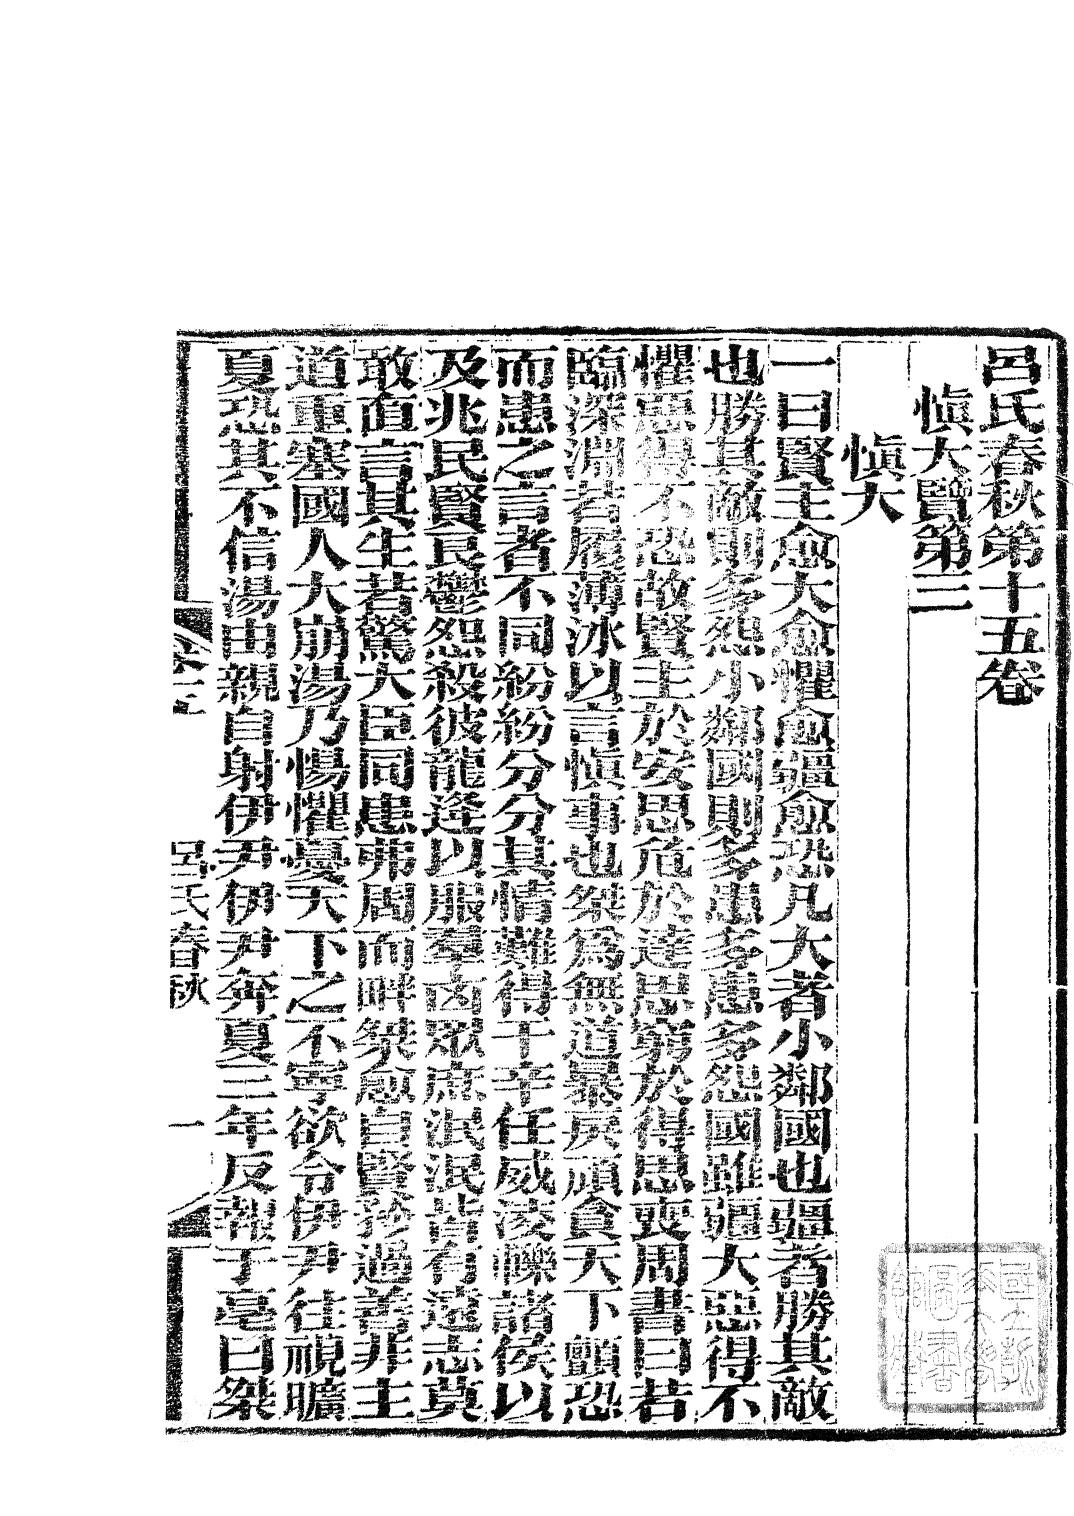 呂氏春秋第十五卷
慎大覽第三
慎大
一曰賢主愈大愈懼愈疆愈恐凡大者小鄰國也疆者勝其敵
也勝其敵則多怨小鄰國則多患多患多怨國雖疆大惡得不
懼惡得不恐故賢主於安思危於達思窮於得思喪周書曰若
臨深淵若履薄冰以言慎事也桀為無道暴戾頑貪天下顫恐
而患之言者不同紛紛分分其情難得干辛任威凌轢諸侯以
及兆民賢良鬱怨殺彼龍逄以服羣凶眾庶泯泯皆有遠志莫
敢直言其生若驚大臣同患弗周而畔桀愈自賢矜過善非主
道重塞國人大崩湯乃惕懼憂天下之不寧欲令伊尹往視曠
夏恐其不信湯由親自射伊尹伊尹奔夏三年反報于亳曰桀
呂氏春秋
一